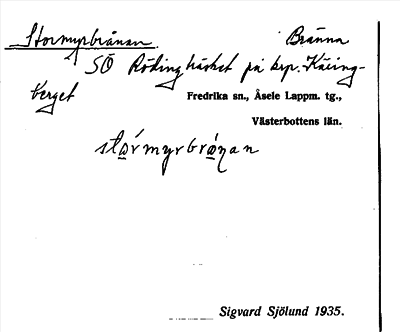 Stormyrbränan Bränna
SÖ Rödingträsket på krp. Käring-
berget
Fredrika sn., Åsele Lappm. tg.,
Västerbottens län.
stormyrbränan
Sigvard Sjölund 1935.